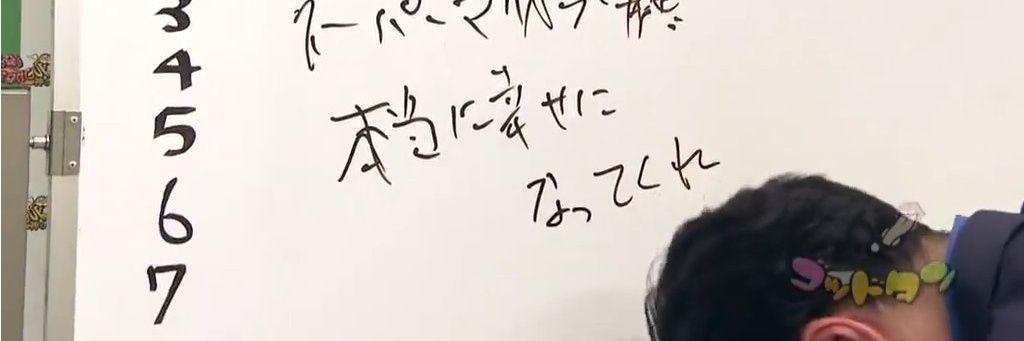 3
4
5 本当に幸せに
なってくれ
6
7
ゴッドタン